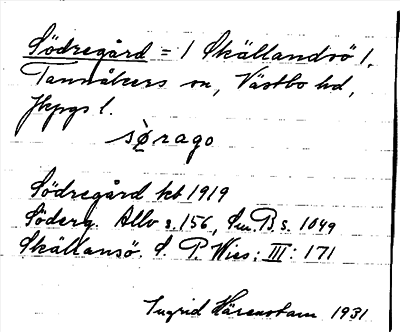 Södregård = 1 Skällandsö 1,
Tannåkers sn, Västbo hd,
Jkpgs l.
sø̀rago
Södregård kb 1919
Söderg. Allb s. 156, Sm. B. s. 1049
Skällansö. S. P. Wies: III: 171
Ingrid Härenstam 1931